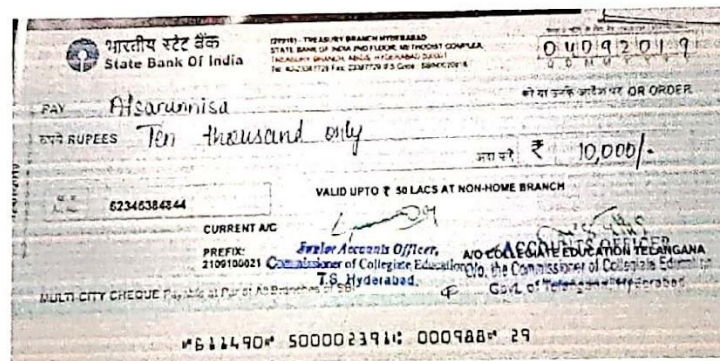 भारतीय स्टेट बैंक
State Bank Of India
TREASURY BRANCH HYDERABAD
STATE BANK OF INDIA 2ND FLOOR, METHODIST COMPLEX,
TREASURY BRANCH, ABIDS, HYDERABAD
04092019
D D M M Y Y Y Y
PAY Afsarunnisa
को या उनके आदेश पर OR ORDER
रुपये RUPEES Ten thousand only
अदा करें ₹ 10,000/-
62346384844
VALID UPTO ₹ 50 LACS AT NON-HOME BRANCH
CURRENT A/C
PREFIX:
2109100021
Junior Accounts Officer,
Commissioner of Collegiate Education
T.S. Hyderabad.
A/O COLLEGIATE EDUCATION TELANGANA
ACCOUNTS OFFICER
O/o. the Commissioner of Collegiate Education
Govt. of Telangana, Hyderabad.
MULTI-CITY CHEQUE Payable at Par at All Branches of SBI
⑈611490⑈ 500002391⑆ 000988⑈ 29